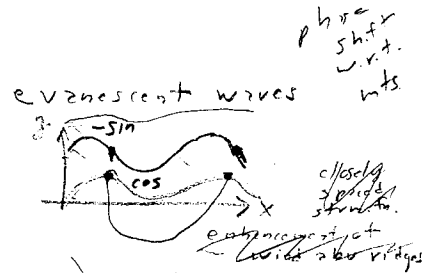 phase
shift
w.r.t.
mts.
evanescent waves
z
-sin
cos
x
closely
spaced
enhancement of
wind abv ridges